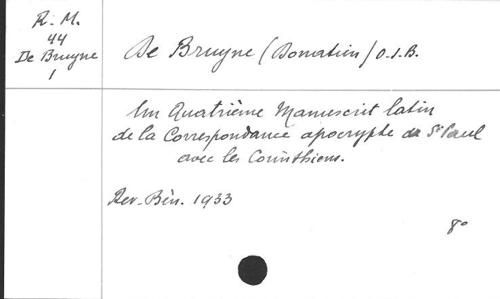 R. M.
44
De Bruyne
1
De Bruyne (Donatien) O.S.B.
Un Quatrième Manuscrit latin
de la Correspondance apocryphe de St Paul
avec les Corinthiens.
Rev. Bén. 1933
8°